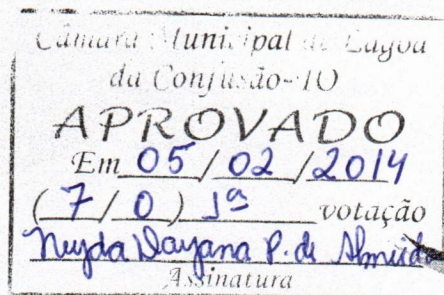 Câmara Municipal de Lagoa
da Confusão-TO
APROVADO
Em 05 / 02 / 2014
( 7 / 0 ) 1ª votação
Dayana P. de Almeida
Assinatura